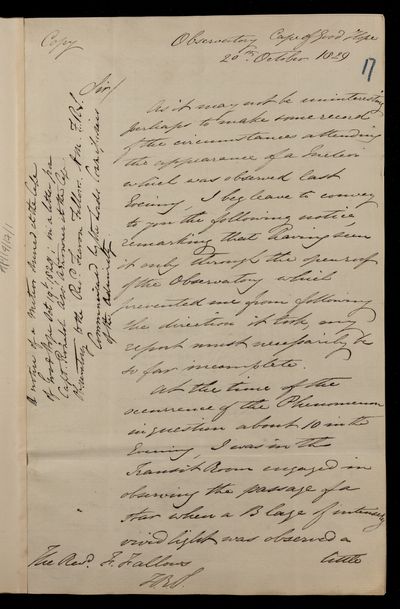 Copy
Observatory Cape of Good Hope
20th October 1829
17
Sir/
As it may not be uninteresting
perhaps to make some record
of the circumstances attending
the appearance of a Meteor
which was observed last
Evening, I beg leave to convey
to you the following notice
remarking that having seen
it only through the open roof
of the Observatory which
prevented me from following
the direction it took, my
report must necessarily be
so far incomplete.
At the time of the
occurrence of the Phenomenon
in question about 10 in the
Evening, I was in the
Transit Room engaged in
observing the passage of a
Star when a Blaze of intensely
vivid light was observed a
little
The Revd. F. Fallows
F.R.S.
A notice of a Meteor seen at the Cape
of Good Hope Octr 19th 1829; in a letter from
Capt. Ronald Assist.
to the Revd. Fearon Fallows A.M. F.R.S.
Communicated by the Lords Commissioners
of the Admiralty